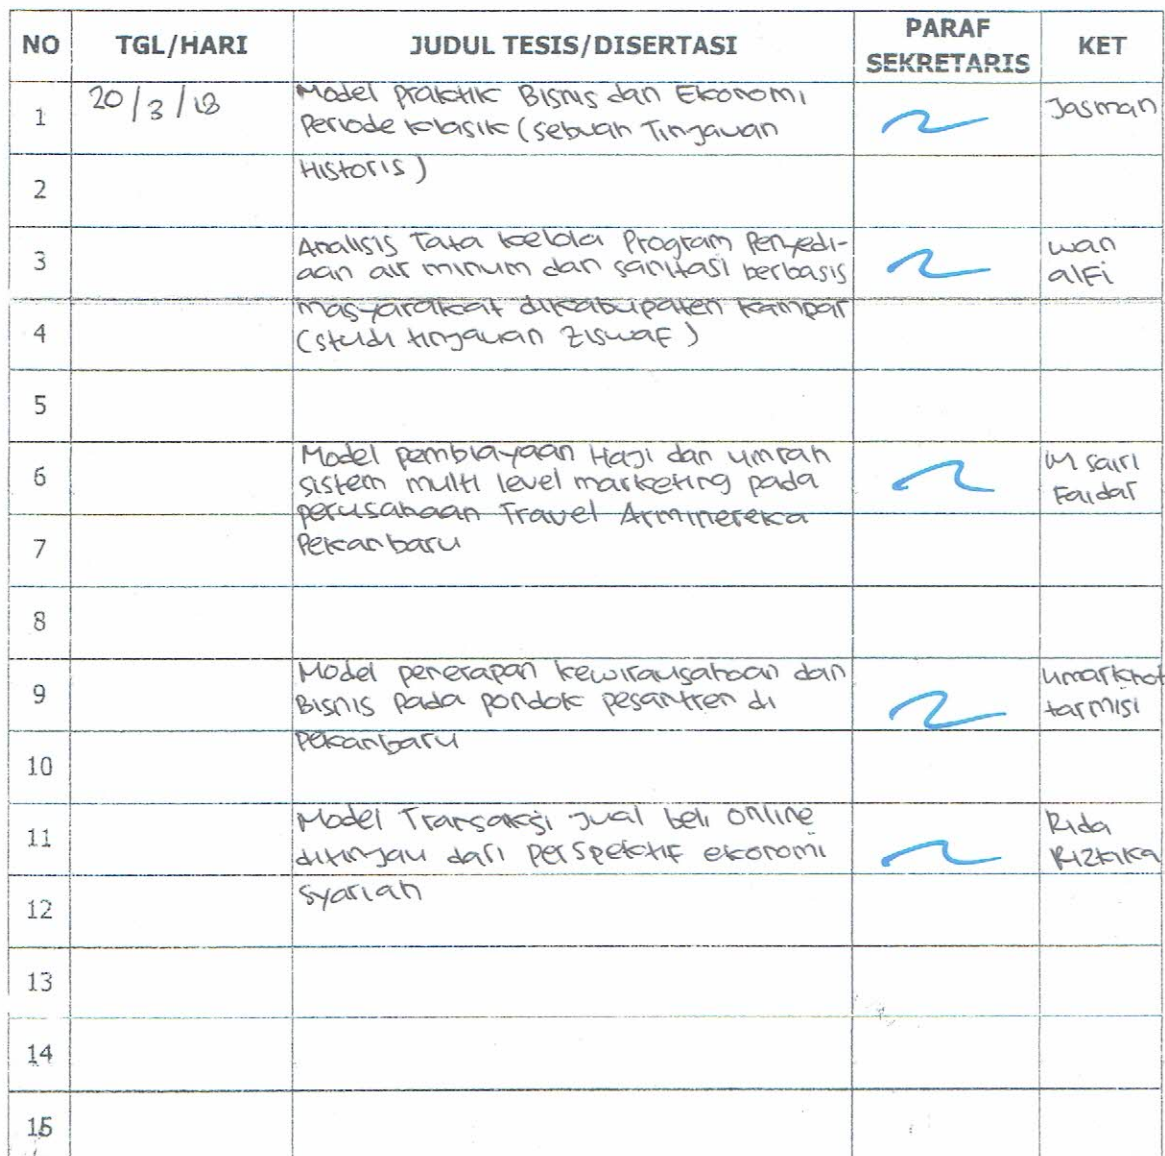 NO TGL/HARI JUDUL TESIS/DISERTASI PARAF SEKRETARIS KET
1 20/3/18 Model praktik Bisnis dan Ekonomi Jasman
Periode klasik (sebuah Tinjauan
2 Historis)
3 Analisis Tata kelola Program Penyedi- wan
aan air minum dan sanitasi berbasis alfi
masyarakat dikabupaten kampar
4 (studi tinjauan ziswaf)
5
6 Model pembiayaan Haji dan umrah M sairi
sistem multi level marketing pada Faidar
perusahaan Travel Arminereka
7 Pekanbaru
8
9 Model penerapan kewirausahaan dan umarkhot
Bisnis Pada pondok pesantren di tarmisi
10 Pekanbaru
11 Model Transaksi jual beli online Rida
ditinjau dari perspektif ekonomi Rizkika
12 syariah
13
14
15